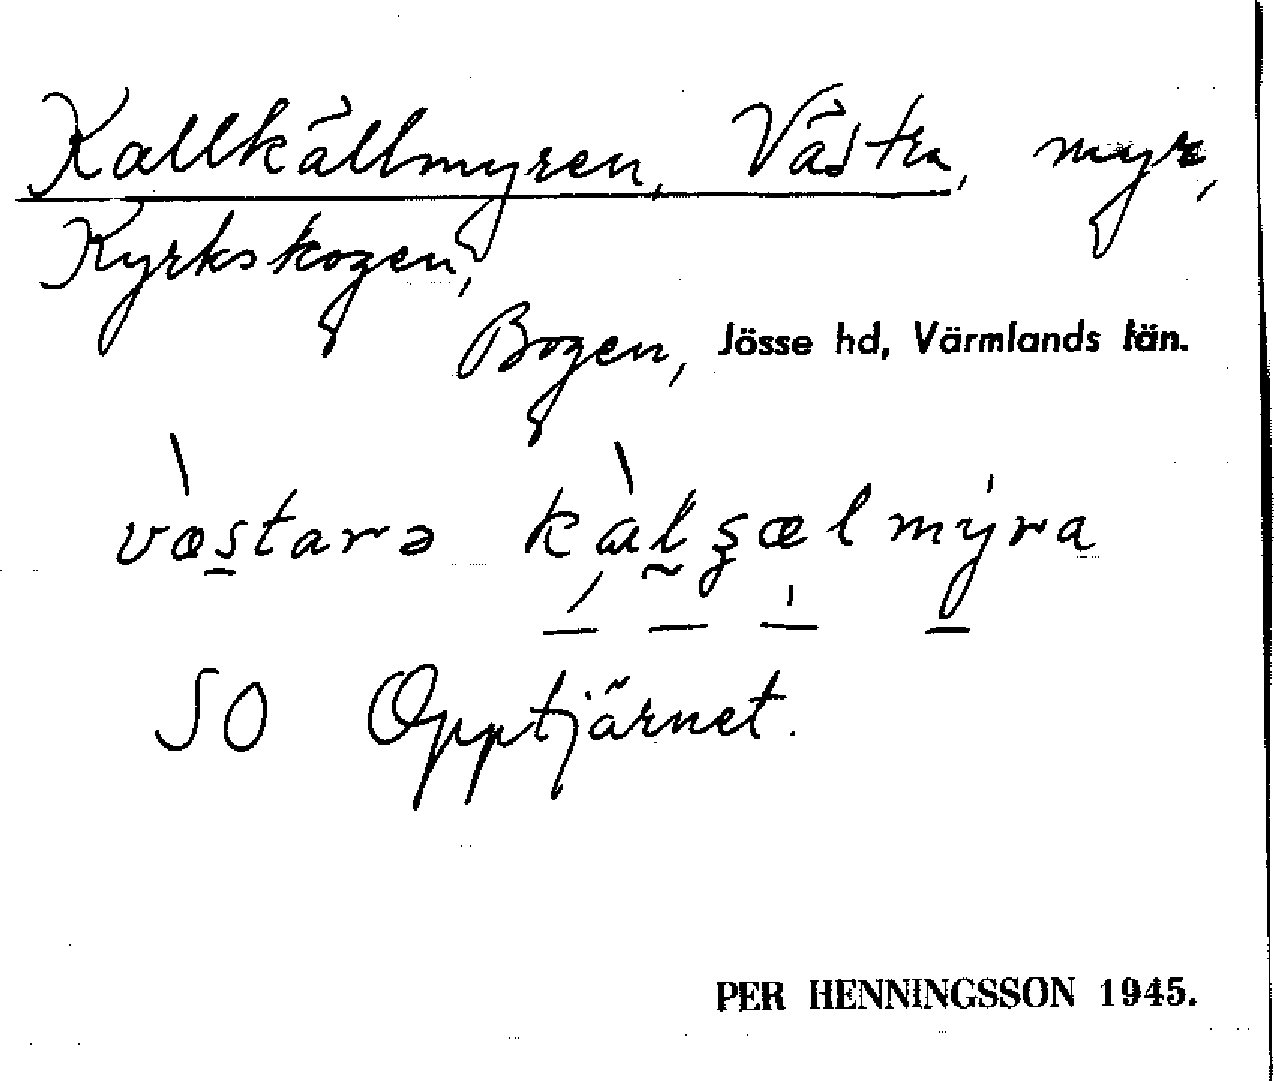 Kallkällmyren, Västra, myr,
Kyrkskogen,
Bogen, Jösse hd, Värmlands län.
væ̀starə kàlʂælmýra
SO Opptjärnet.
PER HENNINGSSON 1945.